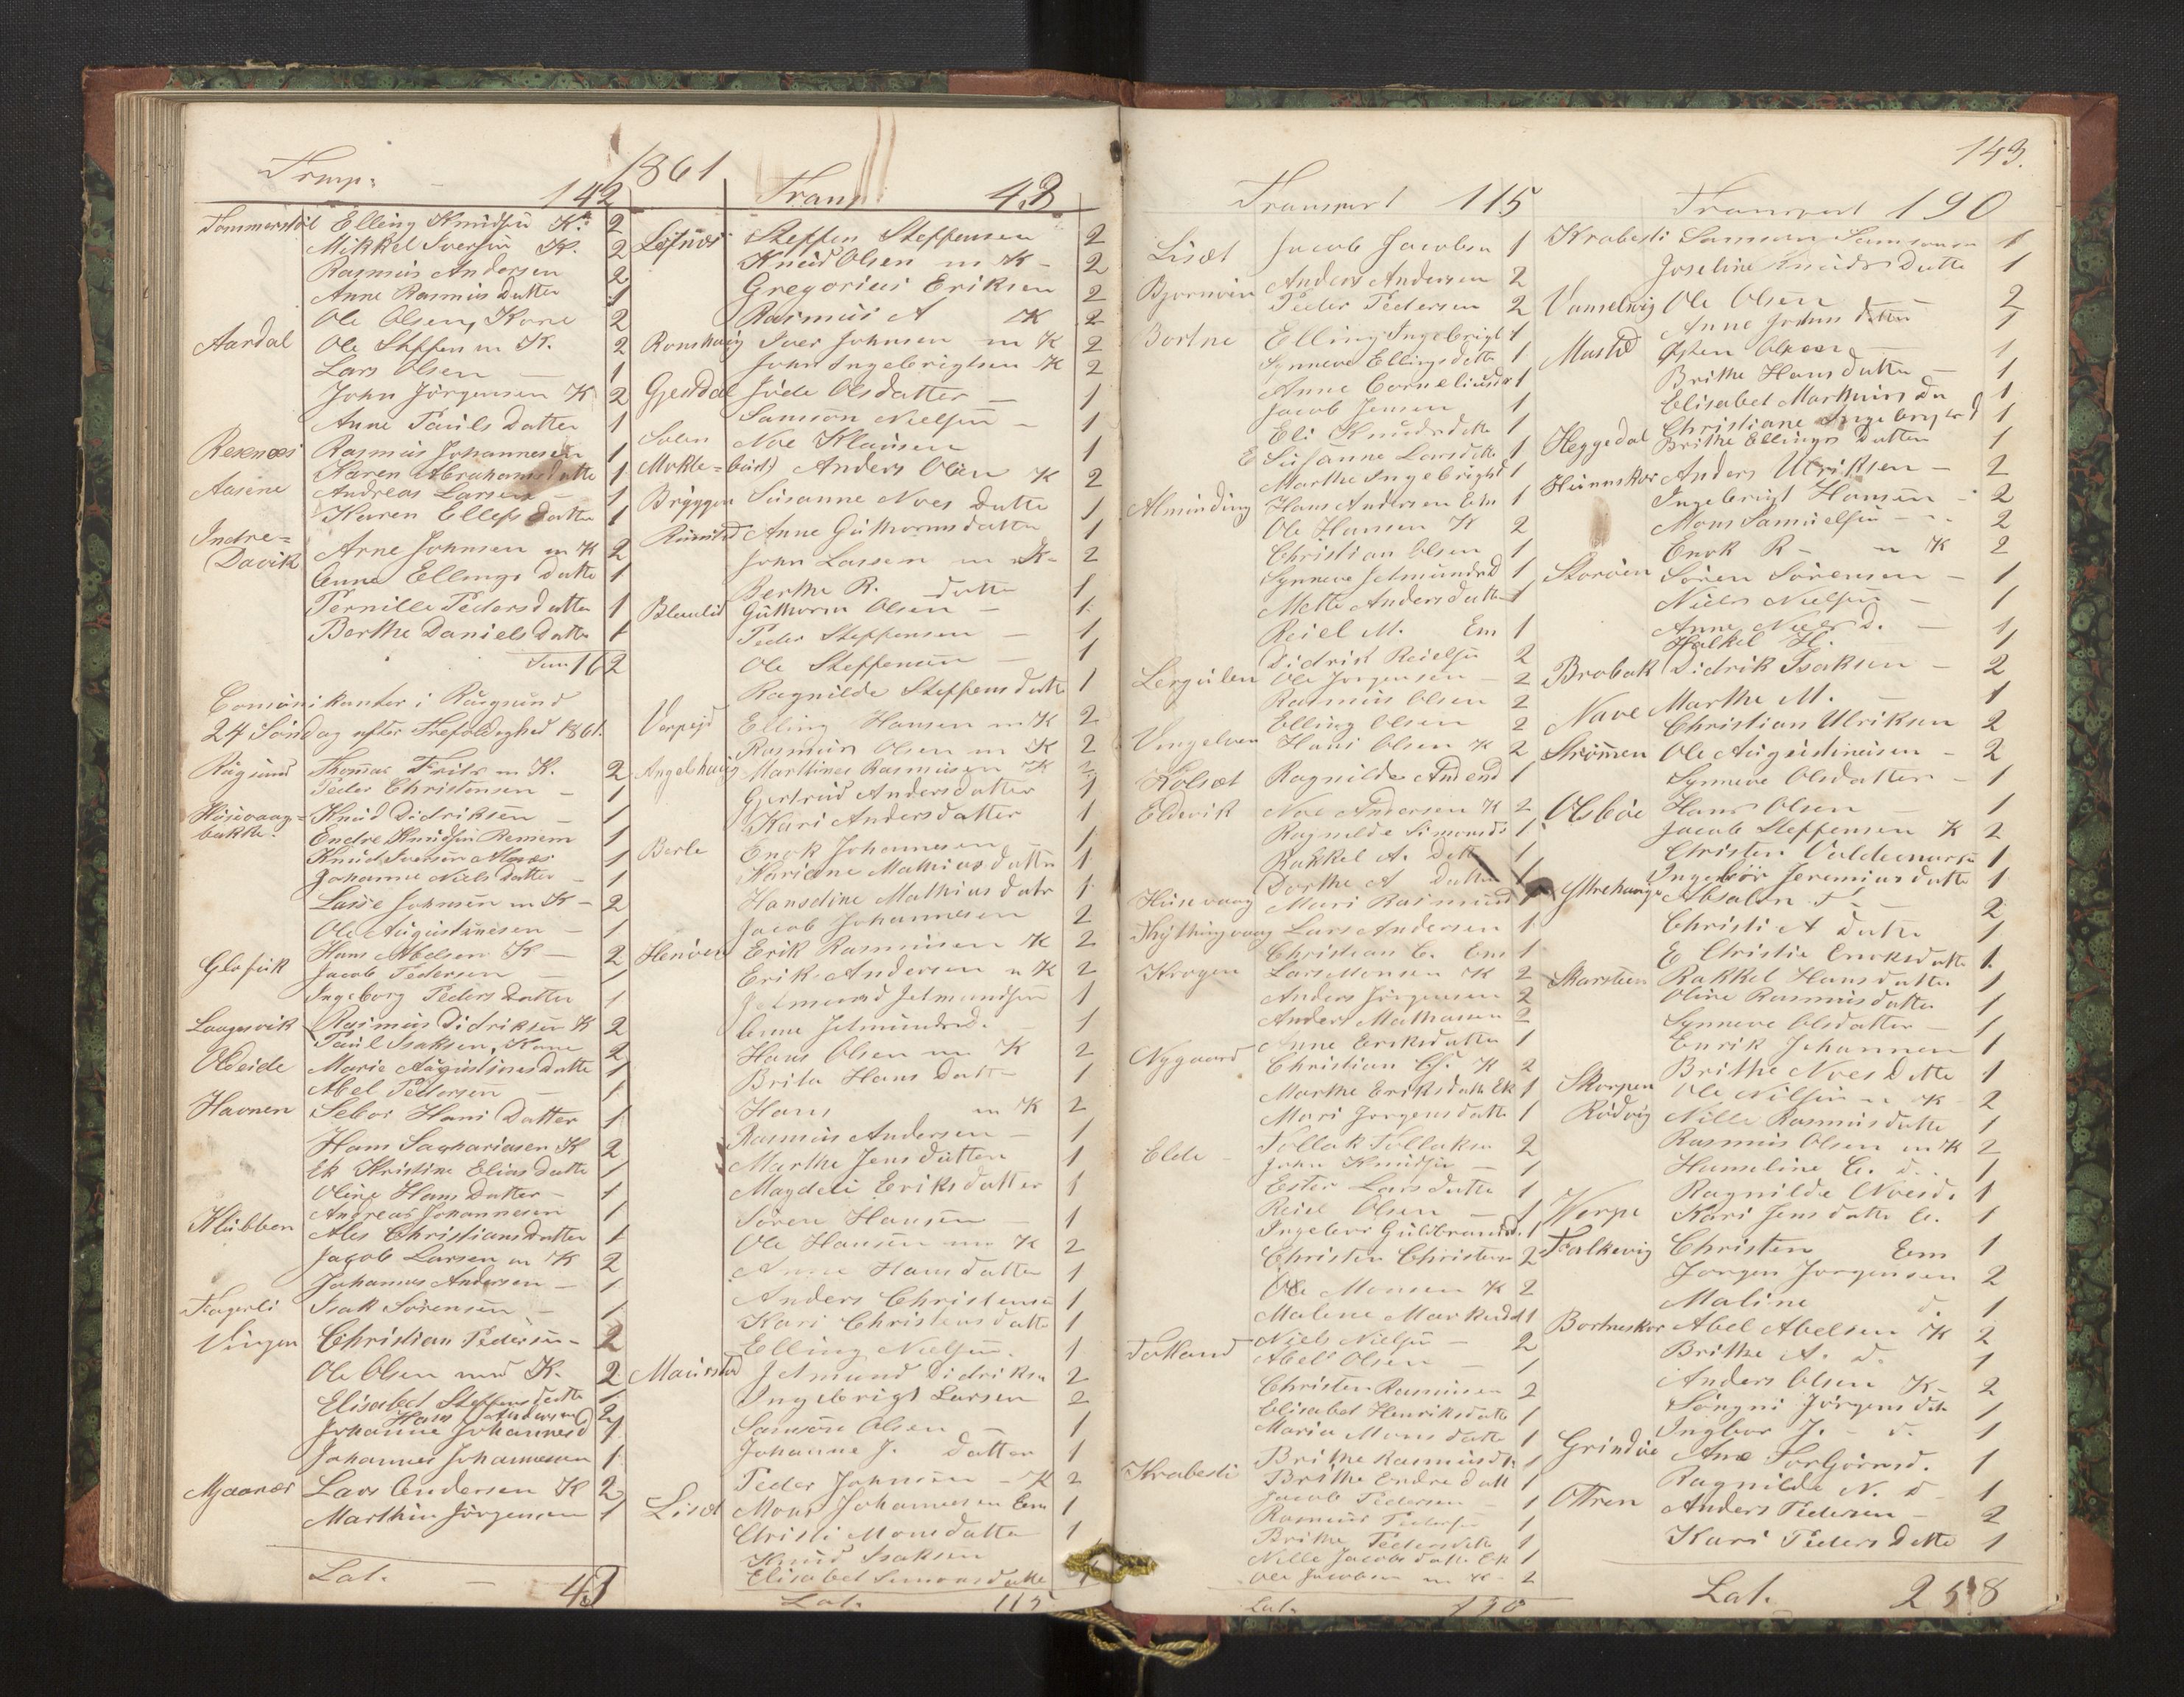 1861
Transp: 142
Tommerstöl Elling Knudsen K. 2
Mikkel Iversen K. 2
Rasmus Andersen 2
Anne Rasmus Datter 1
Ole Olsen, Kone 2
Aardal Ole Steffen m K. 2
Lars Olsen — 1
John Jörgensen K 2
Anne Pauls Datter 1
Rexnæs Rasmus Johannesen 1
Karen Abrahams datte 1
Aasene Andreas Larsen 1
Karen Ellefs Datter 1
Indre=
Davik Arne Johnsen m K 2
Anne Ellings Datte 1
Pernille Peders datter 1
Berthe Daniels Datte 1
Sum 162
Comunikanter i Rugsund
24 Söndag efter Trefoldighed 1861.
Rugsund Thomas Friis m K. 2
Peder Christensen — 1
Husevaag= Knud Didriksen — 1
bakke. Endre Knudsen 1
Knud Iversen 1
Johanne Niels Datter — 1
Lasse Johnsen m K — 2
Ole Augustinesen — 1
Hans Abelsen K — 2
Jacob Pedersen — 1
Ingeborg Peders Datter 1
Laagesvik Rasmus Didriksen K 2
Paul Isaksen, Kone 2
Oldeide Marie Augustines datte 1
Abel Pedersen — 1
Havnen Sebor Hans Datter 1
Hans Sachariasen K 2
Ek Kristine Elias Datte 1
Oline Hans Datter — 1
Andreas Johannesen 1
Klubben Ales Christians datter 1
Jacob Larsen m K 2
Johannes Andersen — 1
Fagerli Isak Sörensen — 1
Vingen Christian Pedersen — 2
Ole Olsen med K. 2
Elisabet Steffens datte 1
Hans Andersen 2
Johanne Johannesd 1
Johannes Johannesen 1
Mjaanæs Lars Andersen K 2
Marthin Jörgensen 1
Lat. — 43
Trans 43
Steffen Steffensen 2
Knud Olsen m K — 2
Gregorius Eriksen 2
Rasmus A K 2
Iver Johnsen m K 2
John Ingebrigtsen K 2
Gjesdal Jöde Olsdatter — 1
Samson Nielsen — 1
Noe Klausen 1
Mokle=bust Anders Olsen K 2
Bryggen Susanne Noes Datte 1
Anne Guthormsdatter 1
John Larsen m K — 2
Berthe R. datter 1
Guthorm Olsen — 1
Peder Steffensen — 1
Ole Steffensen — 1
Ragnilde Steffens datte 1
Elling Hansen m K 2
Rasmus Olsen m K 2
Angelshaug Marthines Rasmusen K
Gjertrud Anders datter 1
Kari Anders datter 1
Berle Enok Johannesen — 1
Mathias datter 1
Hansdine Mathias datr 1
Jacob Johannesen 2
Henöen Erik Rasmusen K 2
Erik Andersen m K 2
Jetmund Jetmundsen 1
Anne Jetmundsd. — 1
Hans Olsen m K 2
Brita Hans Datt — 1
Hans m K 2
Rasmus Andersen — 1
Marthe Jens dutter 1
Magdeli Eriks datter 1
Sören Hansen — 1
Ole Hansen m K 2
Anne Hansdatter 1
Anders Christensen 1
Kari Christens datte 1
Elling Nielsen. 1
Maurstad Jetmund Didriksn 2
Ingebrigt Larsen 2
Samson Olsen — 1
Johanne J. datter 1
Peder Johnsen — K 2
Liset Mons Johannesen Em 1
Christi Monsdatter 1
Knud Isaksen
Elisabet Simonsdatte
Lat. 115
143.
Transport 115
Liset Jacob Jacobsen 1
Anders Andersen 2
Peder Pedersen 2
Bortne Elling Ingebrigt 1
Synneve Ellingsdatte 1
Anne Corneliusdr 1
Jacob Jensen 1
Eli Knudsdatte 1
E Susanne Larsdatte 1
Marthe Ingebrigtsd 1
Almending Hans Andersen Em 1
Ole Hansen K 2
Christian Olsen 1
Synneve Jetmundsd 1
Mette Anders datter 1
Reiel M. Em 1
Didrik Reielsen 2
Lergulen Ole Jorgensen — 2
Rasmus Olsen 2
Elling Olsen 2
Vengelven Hans Olsen K 2
Kolset Ragnilde And end 1
Eldevik Noe Andersen K 2
Ragnilde Simonsd 1
Rakkel A. Datt 1
Dorthe A Datter 1
Husevaag Mari Rasmusd 1
Lars Andersen 1
Christian C. Em 1
Krogen Lars Monsen K 2
Anders Jörgensen 2
Anders Mathiasen 2
Nygaard Anne Eriksdatter 1
Christian K 2
Marthe Eriksdatte Ek 1
Mari Jorgensdatte 1
Elde — Tollak Tollaksn 2
John Knudsen — 1
Ester Larsdatte 1
Reiel Olsen — 1
Ingebor Guldbrandsd. 1
Christen Christens 2
Ole Monsen K 2
Malene Markusd 1
Niels Nielsen — 2
Abel Olsen — 1
Christen Rasmusen 2
Elisabet Henriksdatte 1
Maria Mons datte 1
Krabesti Brithe Rasmusdt 1
Brithe Endre datt 1
Jacob Pedersen 1
Rasmus Pedersen 1
Brithe Pedersdatte 1
Nille Jacobs datte Ek 1
Ole Jacobsen m K — 2
Lat. 190
Transport 190
Krabesti Samson Samsonsn 1
Joseline Knuds Datte 1
Vemelsvig Ole Olsen — 2
Anne Johns datter 1
Olsen 1
Brithe Hans datter — 1
Elisabet Marthins da 1
Christiane Ingebrigtsd 1
Heggedal Brithe Ellings Datter 1
Hunnskor Anders Ulriksen — 2
Ingebrigt Hansen — 2
Mons Samuelsen — 2
Enok R — m K 2
Storöen Sören Sörensen — 1
Niels Nielsen — 1
Anne Niels D. — 1
H. 1
Brobak Didrik Isaksen — 2
Nave Marthe M. — 1
Christian Ulriksen 2
Strömen Ole Augustinusen — 2
Synneve Olsdatter — 1
Olsböe Hans Olsen — 1
Jacob Steffensen K 2
Christen Valdemarsn 1
Ingebör Jeremias datte 1
Absalon 2
Christi A Datte 1
E Christie Enoksdatte 1
Skarsteen Rakkel Hansdatter 1
Oline Rasmusdatter 1
Synneve Olsdatter — 1
Enrik Johannesen 1
Brithe Noes Datte 1
Skorpen Ole Nilsen m K — 2
Rödvig Nille Rasmusdatte 1
Rasmus Olsen m K 2
Hanseline C. d. 1
Ragnilde Noesd. 1
Verpe Kari Jensdatte C. 1
Falkevig Christen Em 1
Jorgen Jorgensen 2
Maline d. 1
Bortneskor Abel Abelsen K 2
Brithe A. d. 1
Anders Olsen K — 2
Söngni Jörgens dat 1
Ingbor J. — d. 1
Grindöie Ane Torbjörnsd. 1
Ragnilde N. d. 1
Otren Anders Pedersen — 2
Kari Peders Datte 1
Lat. 258